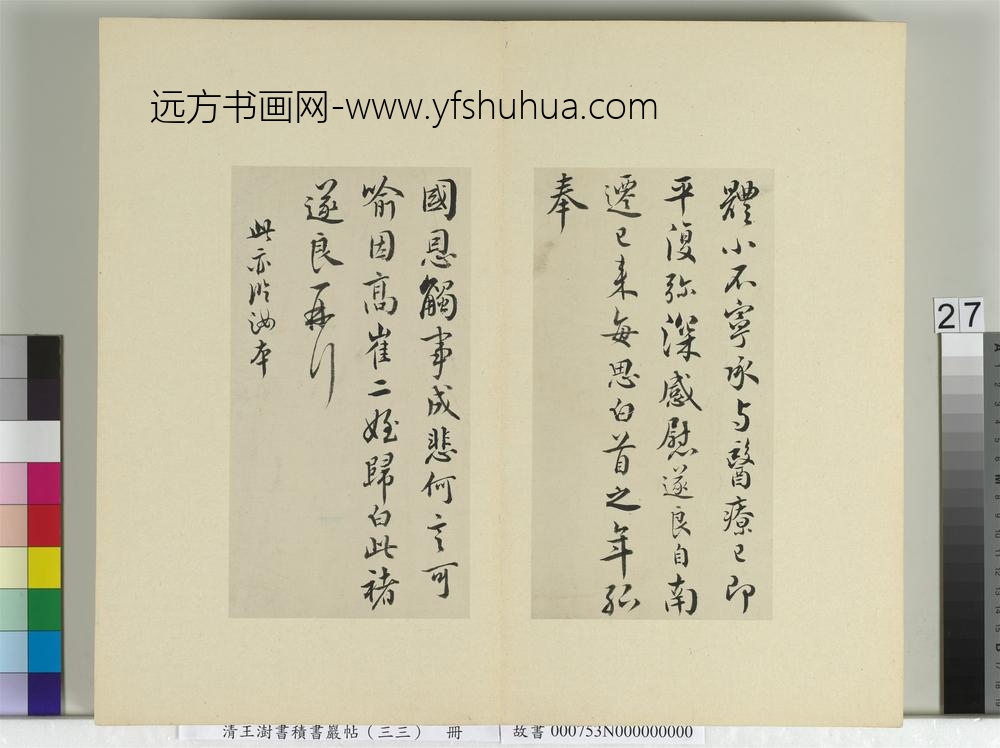 远方书画网-www.yfshuhua.com
體小不寧承与醫療已即
平復弥深感慰遂良自南
遷已来每思白首之年孤
奉
國恩觸事成悲何言可
喻因高崔二姪歸白此褚
遂良再行
此亦臨汝本
27
清王澍書積書巖帖（三三） 冊
故書 000753N000000000